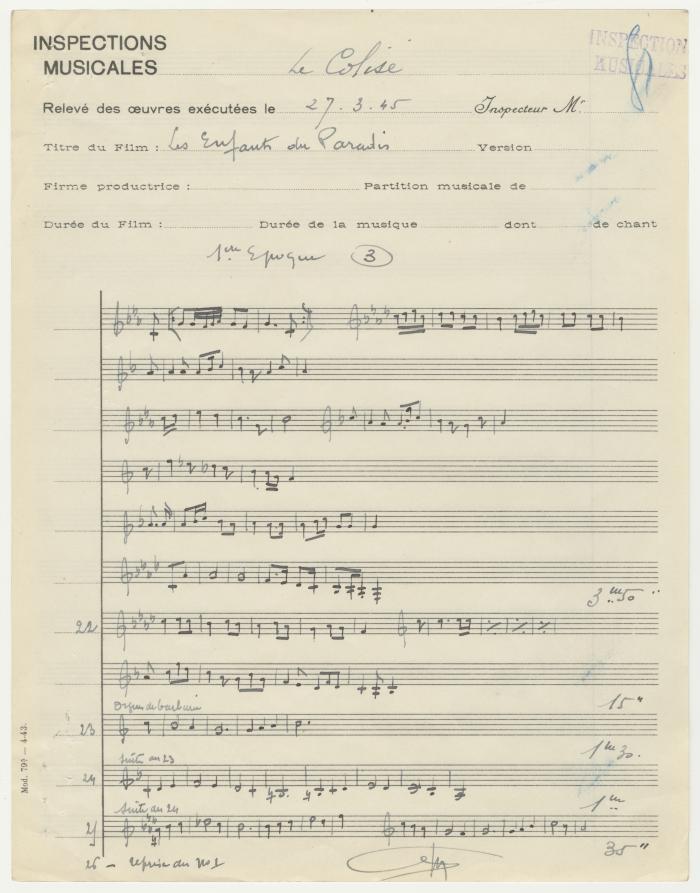 INSPECTIONS
MUSICALES
INSPECTION
MUSICALES
Le Colisé
Relevé des œuvres exécutées le 27.3.45 Inspecteur Mr
Titre du Film : Les Enfants du Paradis Version
Firme productrice : Partition musicale de
Durée du Film : Durée de la musique dont de chant
1ère Epoque 3
3 m 50 "
22
15"
Orgue de barbarie
23
1 m 30.
Suite au 23
24
1 m
Suite au 24
25
35"
26 - reprise du No 1
Mod. 799 — 4-43.